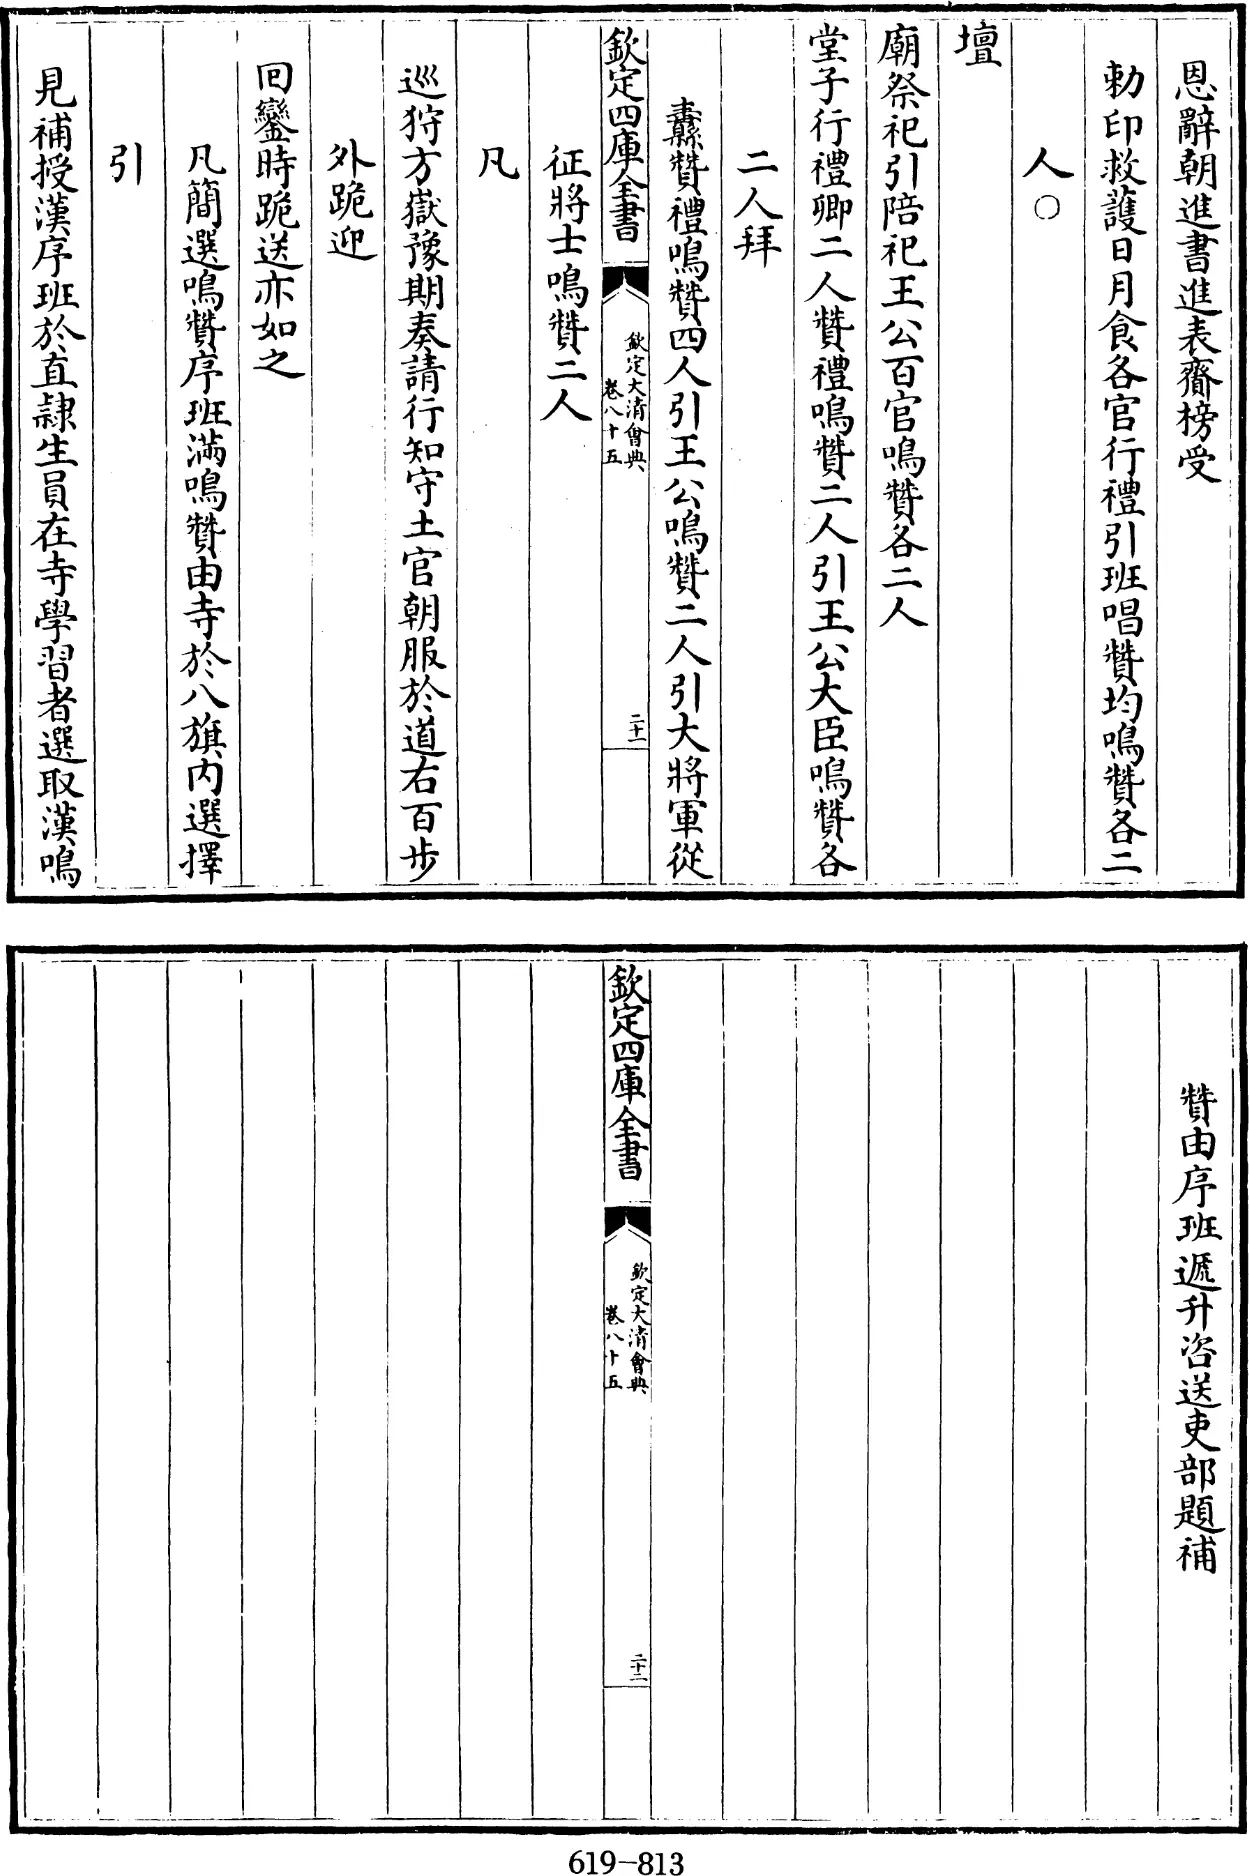 恩辭朝進書進表齎榜受
勅印救護日月食各官行禮引班唱贊均鳴贊各二
人○
壇
廟祭祀引陪祀王公百官鳴贊各二人
堂子行禮卿二人贊禮鳴贊二人引王公大臣鳴贊各
二人拜
纛贊禮鳴贊四人引王公鳴贊二人引大將軍從
欽定四庫全書
欽定大清會典
卷八十五
二十一
征將士鳴贊二人
凡
巡狩方嶽豫期奏請行知守土官朝服於道右百步
外跪迎
回鑾時跪送亦如之
凡簡選鳴贊序班滿鳴贊由寺於八旗内選擇
引
見補授漢序班於直隸生員在寺學習者選取漢鳴
贊由序班遞升咨送吏部題補
欽定四庫全書
欽定大清會典
卷八十五
二十二
619-813